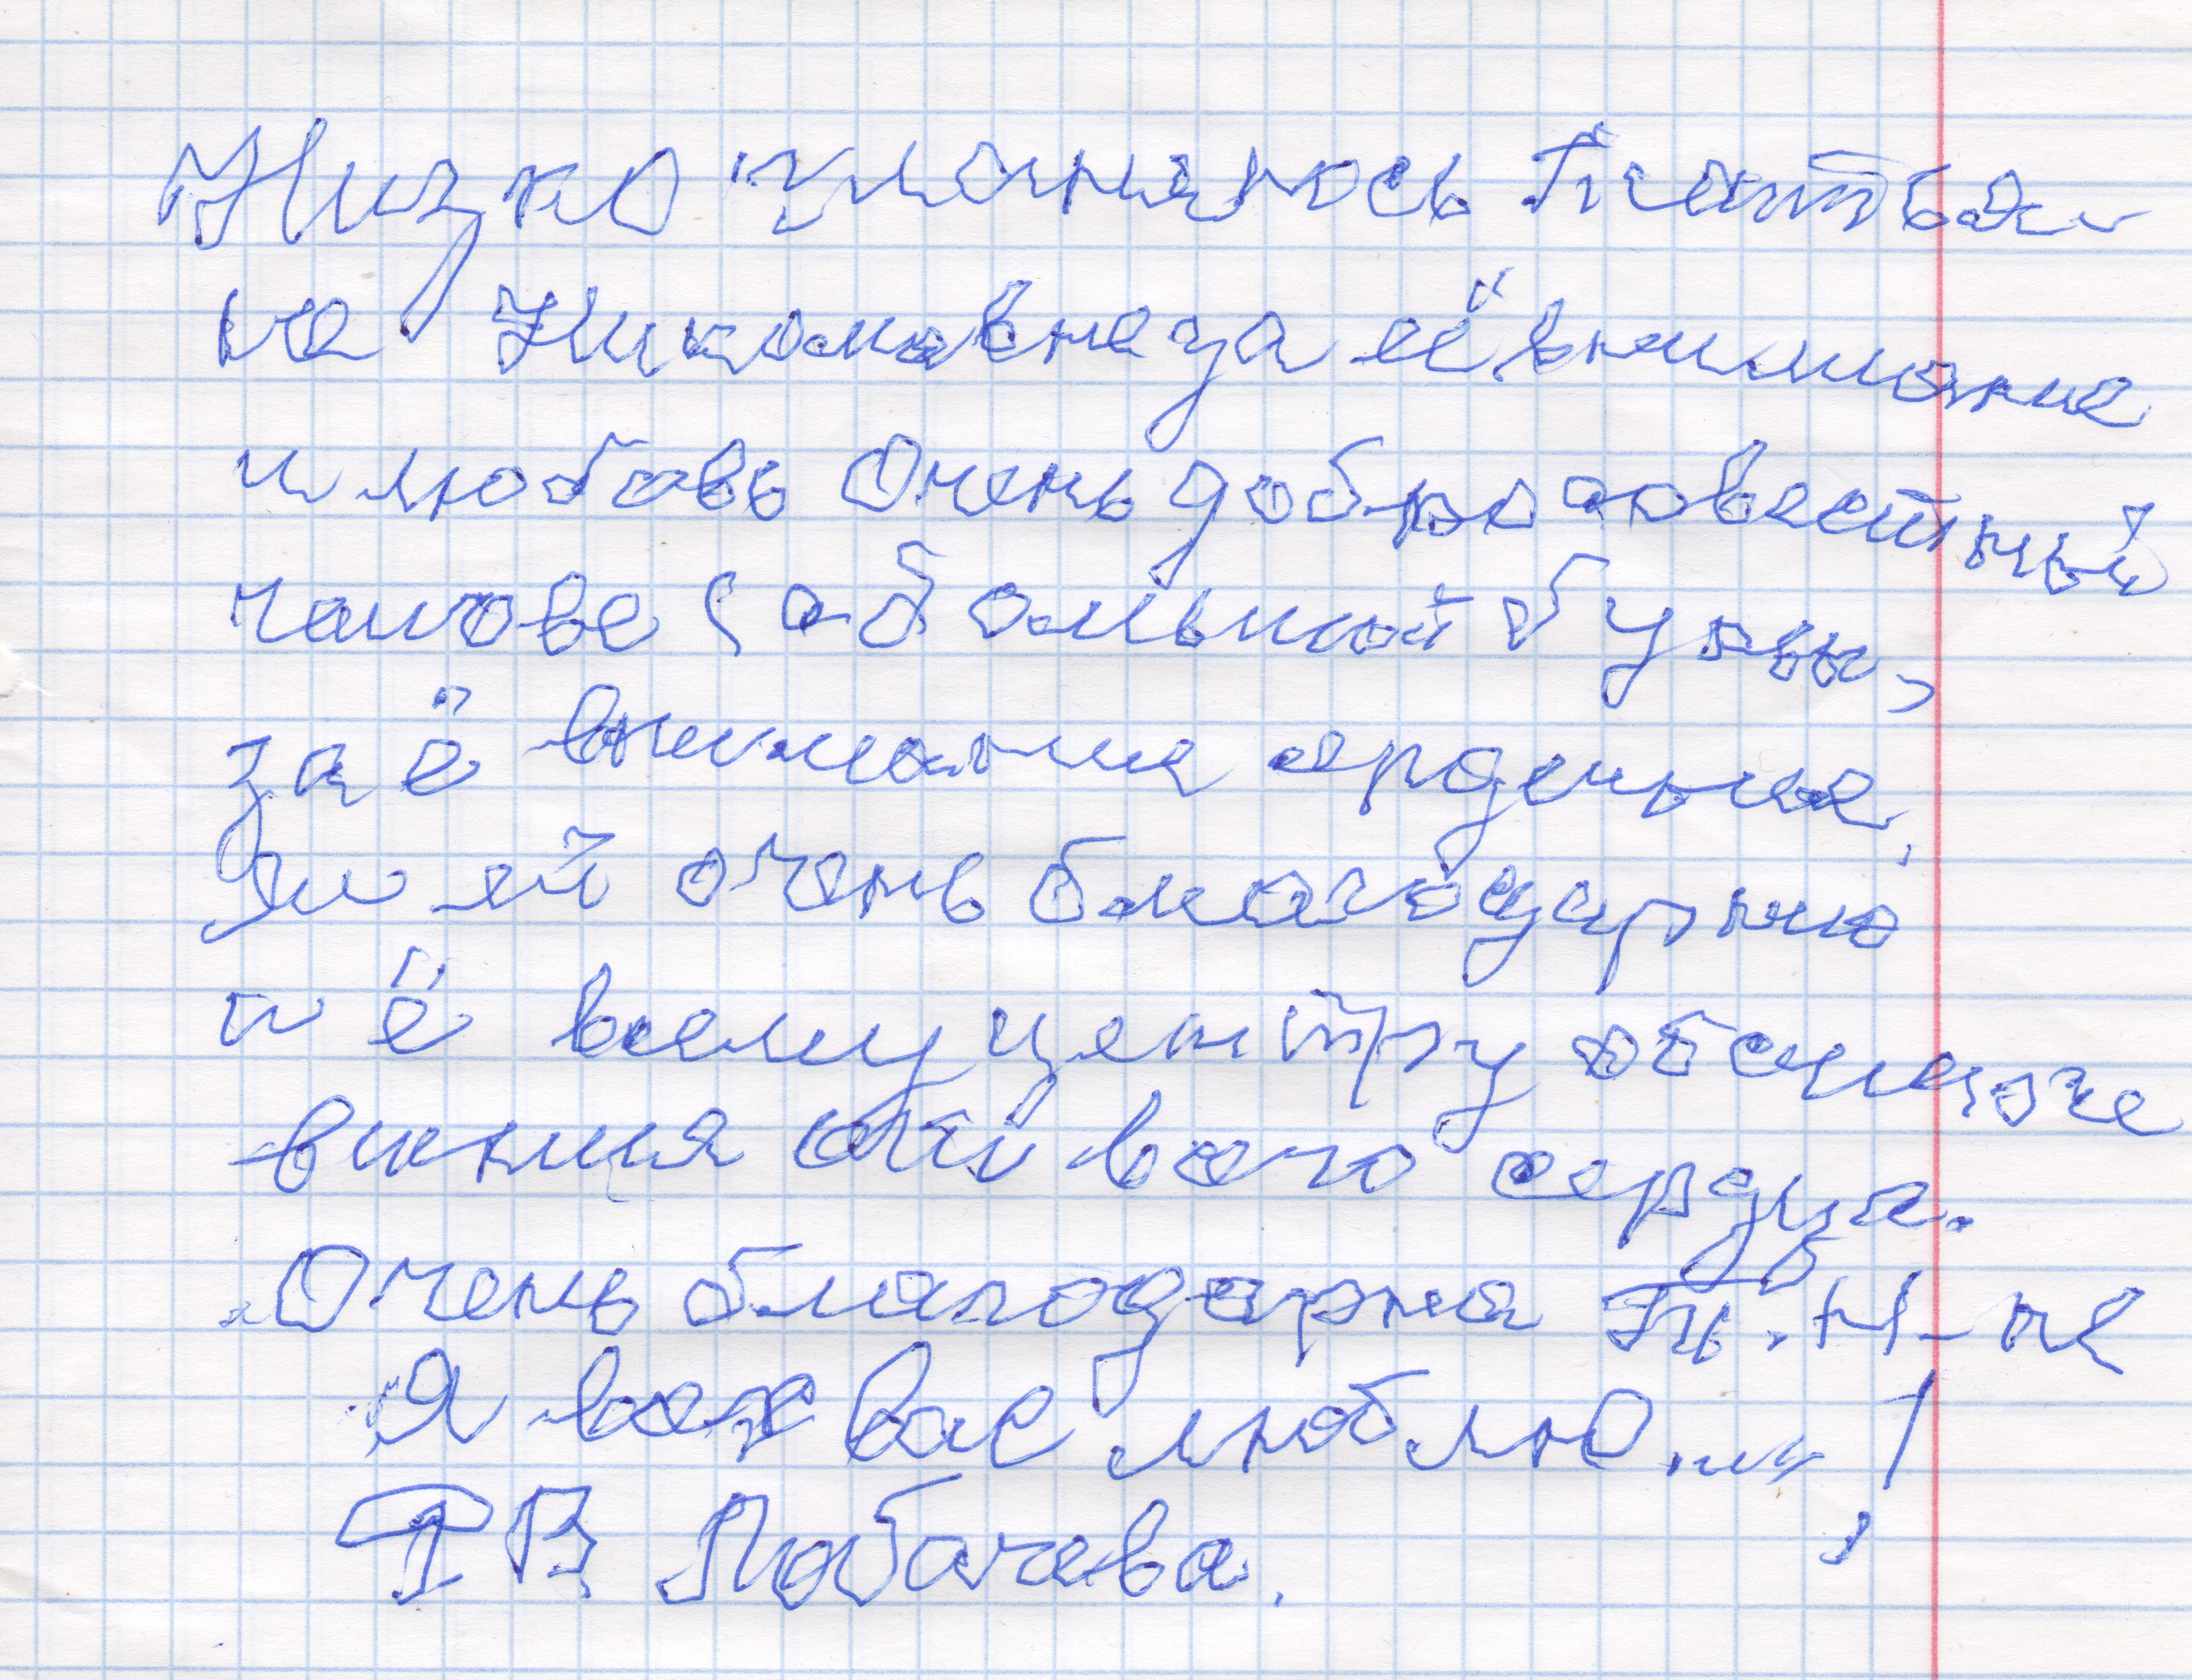 Низко кланяюсь Татья
не Николавне за её внимание
и любовь Очень добросовестный
чалове с а большой буквы,
за её внимание сердечное,
Я ей очень благодарно
и ё всему центру обслуже
виния от всего сердца.
Очень благодарна Тт. Н-не
Я всех вас люблю....!
Т В Лобачева.